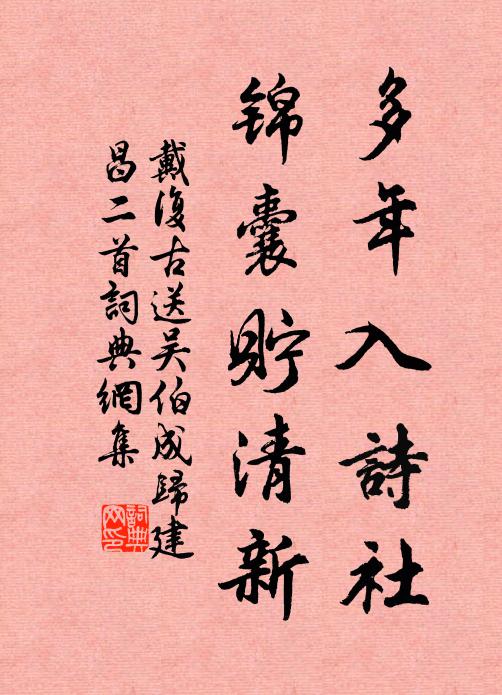 多年入詩社
锦囊貯清新
戴復古送吴伯成歸建
昌二首詞典網集
詞典
网印